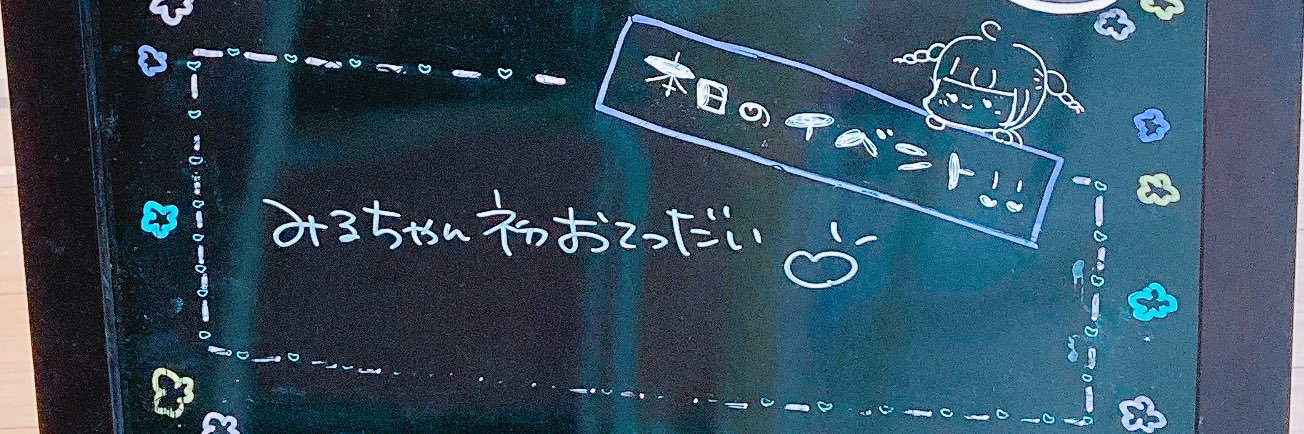 本日のイベント!!
みるちゃん初おてつだい